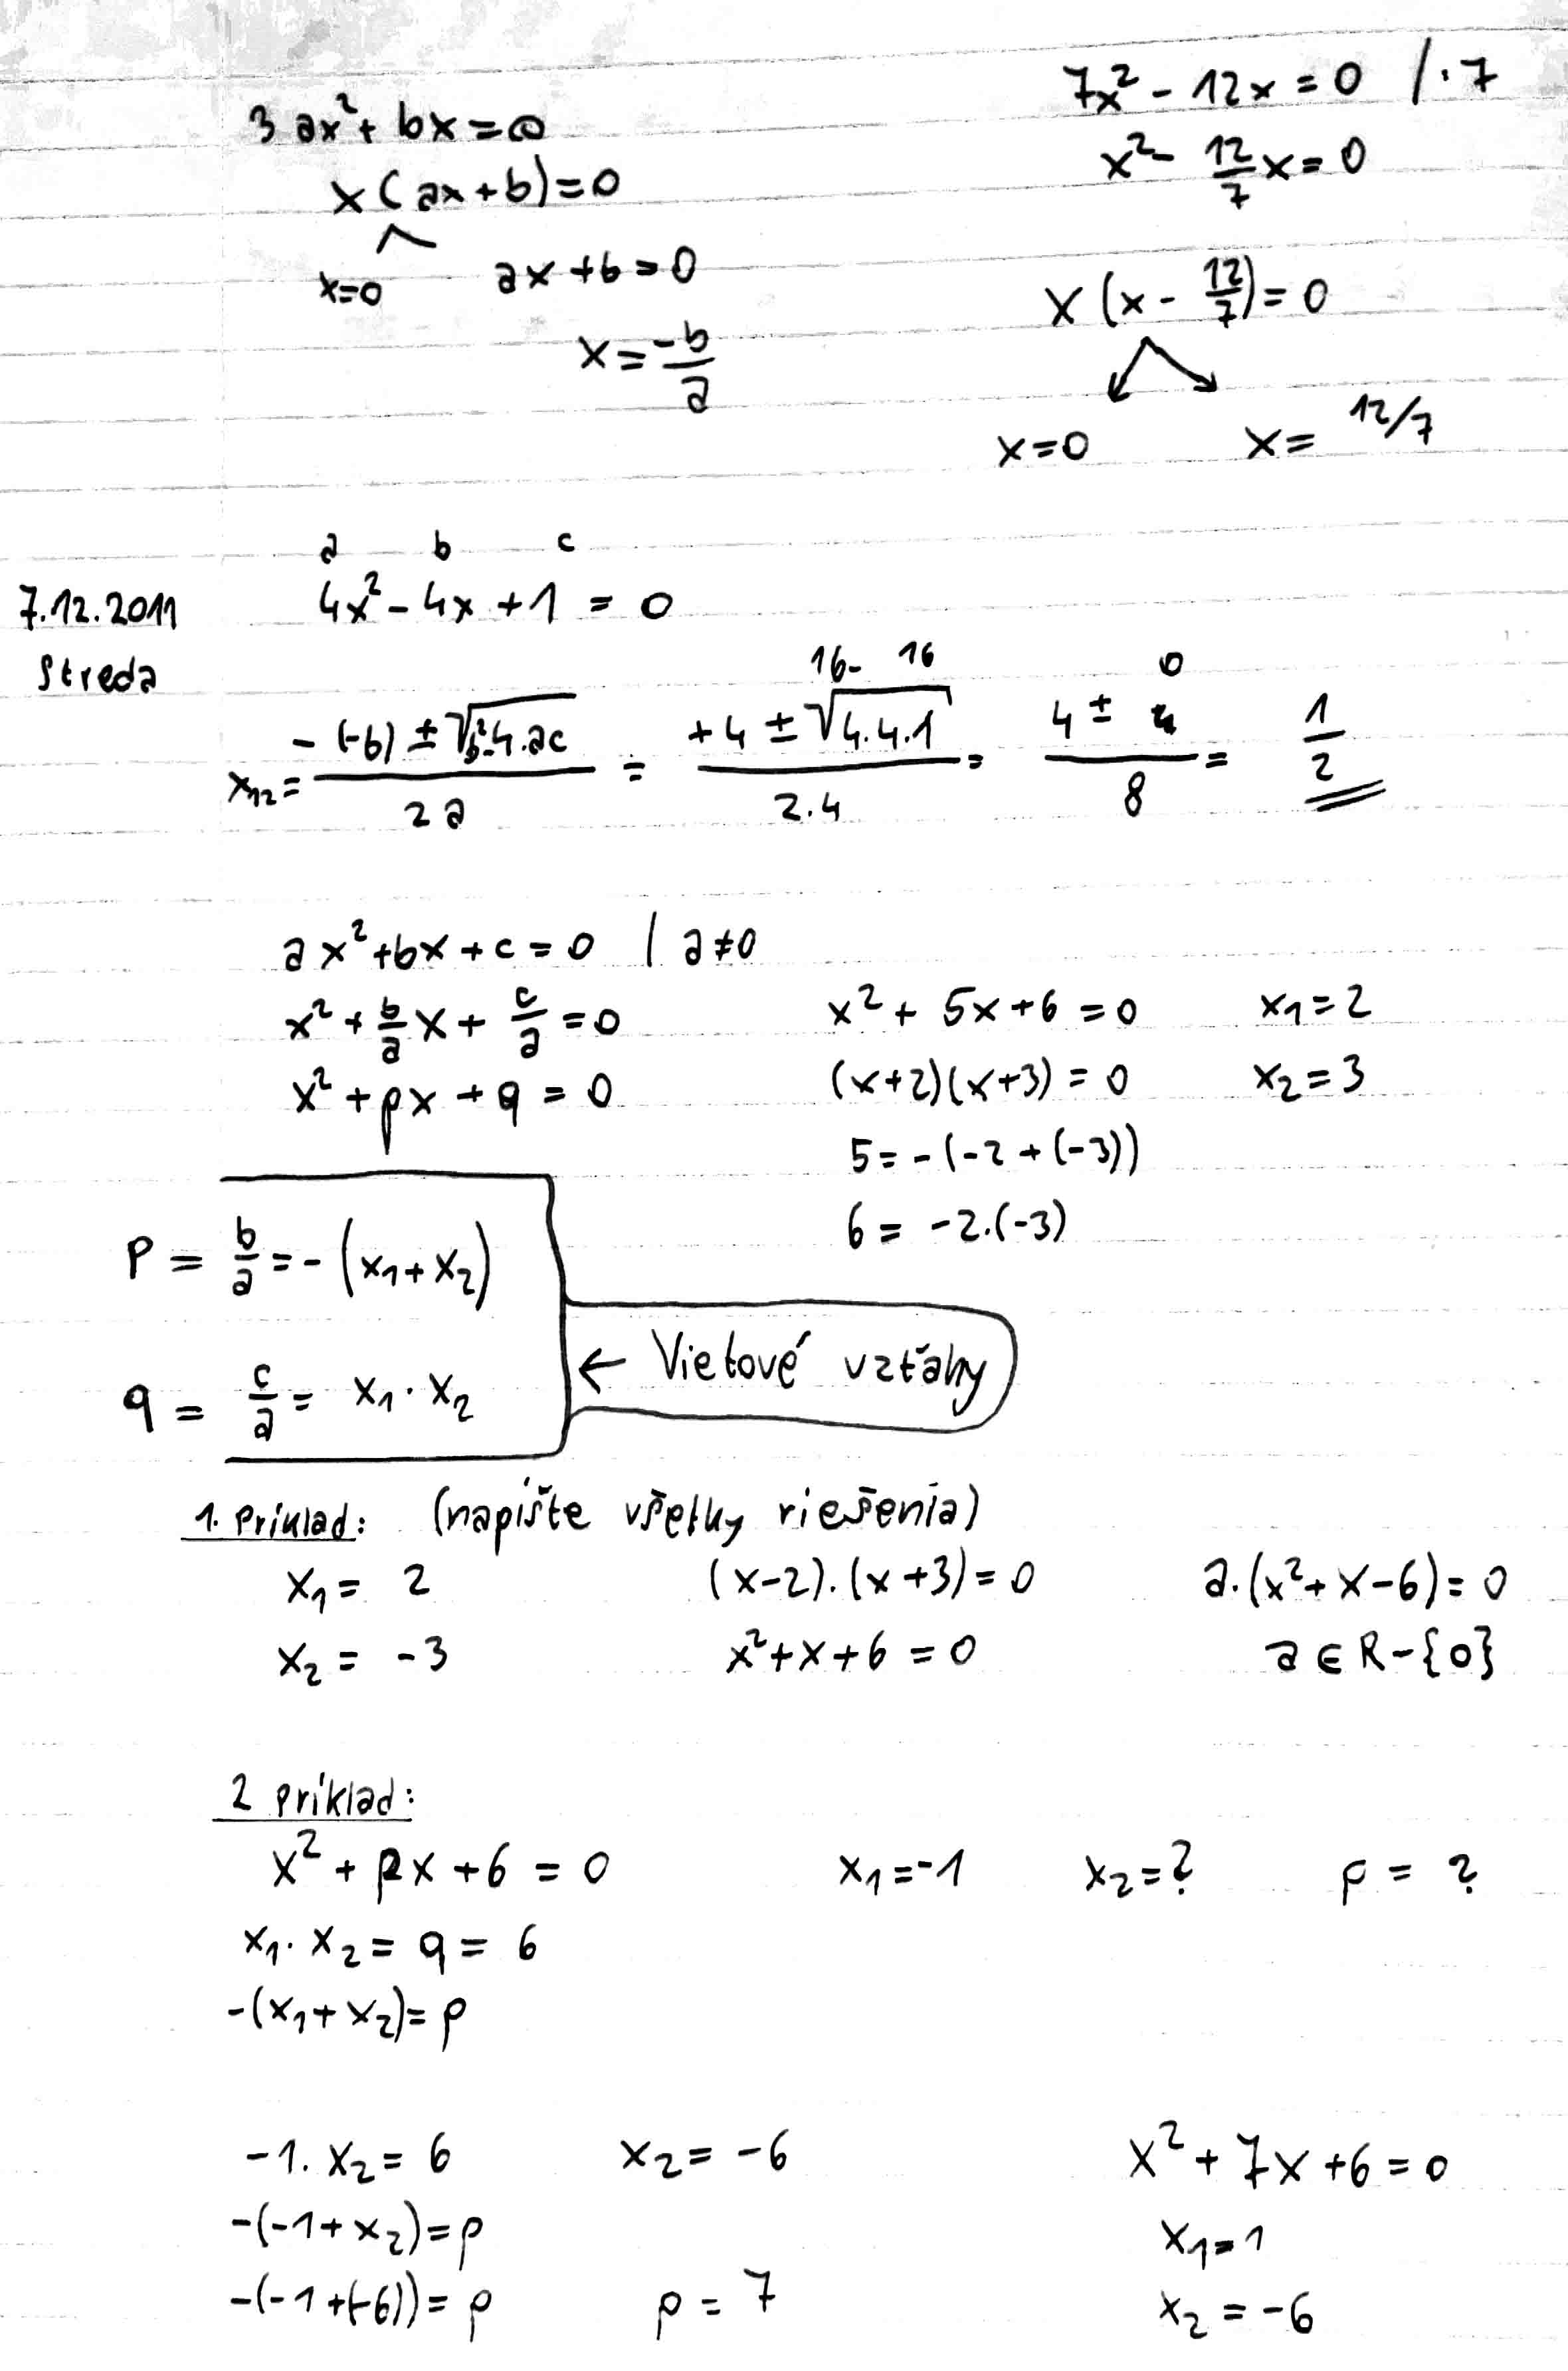 3 ax² + bx = 0
x(ax + b) = 0
x=0 ax + b = 0
x = -b/a
7x² - 12x = 0 / · 7
x² - 12/7 x = 0
x(x - 12/7) = 0
x=0 x = 12/7
a b c
7.12.2011 4x² - 4x + 1 = 0
Streda
16- 16 0
x₁₂ = (-(-b) ± √(b²-4.ac))/(2a) = (+4 ± √(4.4.1))/(2.4) = (4 ± )/8 = 1/2
ax² + bx + c = 0 | a ≠ 0
x² + b/a x + c/a = 0
x² + px + q = 0
x² + 5x + 6 = 0 x₁ = 2
(x+2)(x+3) = 0 x₂ = 3
5 = -(-2 + (-3))
6 = -2.(-3)
P = b/a = -(x₁ + x₂)
q = c/a = x₁ · x₂
← Vietové vzťahy
1. Príklad: (napíšte všetky riešenia)
x₁ = 2 (x-2).(x+3) = 0 a.(x² + x - 6) = 0
x₂ = -3 x² + x + 6 = 0 a ∈ R - {0}
2 príklad:
x² + px + 6 = 0 x₁ = -1 x₂ = ? p = ?
x₁ · x₂ = q = 6
-(x₁ + x₂) = p
-1. x₂ = 6 x₂ = -6 x² + 7x + 6 = 0
-(-1 + x₂) = p x₁ = 1
-(-1 + (-6)) = p p = 7 x₂ = -6